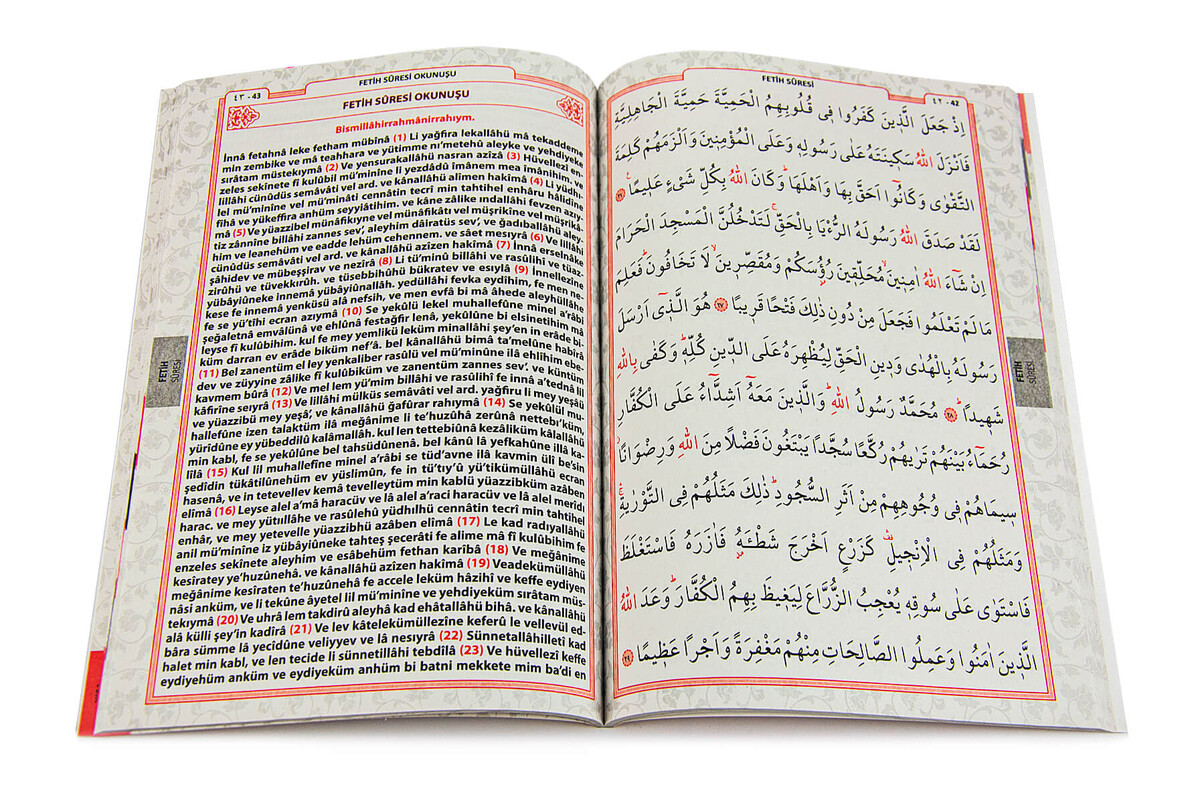 FETİH SÛRESİ OKUNUŞU
٤٣ - 43
FETİH SÛRESİ OKUNUŞU
Bismillâhirrahmânirrahıym.
İnnâ fetahnâ leke fetham mübînâ (1) Li yağfira lekallâhü mâ tekaddeme
min zembike ve mâ teahhara ve yütimme nı’metehû aleyke ve yehdiyeke
sırâtam müstekıymâ (2) Ve yensurakallâhü nasran azîzâ (3) Hüvellezî en
zeles sekînete fî kulûbil mü’minîne li yezdâdû îmânen mea îmânihim. ve
lillâhi cünûdüs semâvâti vel ard. ve kânallâhü alîmen hakîmâ (4) Li yüdhı-
lel mü’minîne vel mü’minâti cennâtin tecrî min tahtihel enhâru hâlidîne
fîhâ ve yükeffira anhüm seyyiâtihim. ve kâne zâlike ındallâhi fevzen azıy-
mâ (5) Ve yüazzibel münâfikıyne vel münâfikâti vel müşrikîne vel müşrikâ-
tiz zânnîne billâhi zannes sev’, aleyhim dâiratüs sev’, ve ğadıballâhü aley-
him ve leanehüm ve eadde lehüm cehennem. ve sâet mesıyrâ (6) Ve lillâhi
cünûdüs semâvâti vel ard. ve kânallâhü azîzen hakîmâ (7) İnnâ erselnâke
şâhidev ve mübeşşirav ve nezîrâ (8) Li tü’minû billâhi ve rasûlihî ve tüaz-
zirûhü ve tüvekkırûh. ve tüsebbihûhü bükratev ve esıylâ (9) İnnellezîne
yübâyiûneke innemâ yübâyiûnallah. yedüllâhi fevka eydîhim, fe men ne-
kese fe innemâ yenküsü alâ nefsih, ve men evfâ bi mâ âhede aleyhüllâhe
fe se yü’tîhi ecran azıymâ (10) Se yekûlü lekel muhallefûne minel a’râbi
şeğaletnâ emvâlünâ ve ehlûnâ festağfir lenâ, yekûlûne bi elsinetihim mâ
leyse fî kulûbihim. kul fe mey yemlikü leküm minallâhi şey’en in erâde bi-
küm darran ev erâde biküm nef’â. bel kânallâhü bimâ ta’melûne habîrâ
(11) Bel zanentüm el ley yenkaliber rasûlü vel mü’minûne ilâ ehlîhim ebe-
dev ve züyyine zâlike fî kulûbiküm ve zanentüm zannes sev’. ve küntüm
kavmem bûrâ (12) Ve mel lem yü’mim billâhi ve rasûlihî fe innâ a’tednâ lil
kâfirîne seıyrâ (13) Ve lillâhi mülküs semâvâti vel ard. yağfiru li mey yeşâü
ve yüazzibü mey yeşâ’, ve kânallâhü ğafûrar rahıymâ (14) Se yekûlül mu-
hallefûne izen talaktüm ilâ meğânime li te’huzûhâ zerûnâ nettebı’küm,
yürîdûne ey yübeddilû kalâmallâh. kul len tettebiûnâ kezâliküm kâlallâhü
min kabl, fe se yekûlûne bel tahsüdûnenâ. bel kânû lâ yefkahûne illâ ka-
lîlâ (15) Kul lil muhallefîne minel a’râbi se tüd’avne ilâ kavmin ülî be’sin
şedîdin tükâtilûnehüm ev yüslimûn, fe in tü’tıy’û yü’tikümüllâhü ecran
hasenâ, ve in tetevellev kemâ tevelleytüm min kablü yüazzibküm azâben
elîmâ (16) Leyse alel a’mâ haracüv ve lâ alel a’raci haracüv ve lâ alel merîdı
harac. ve mey yütııllâhe ve rasûlehû yüdhılhü cennâtin tecrî min tahtihel
enhâr, ve mey yetevelle yüazzibhü azâben elîmâ (17) Le kad radıyallâhü
anil mü’minîne iz yübâyiûneke tahteş şecerâti fe alime mâ fî kulûbihim fe
enzeles sekînete aleyhim ve esâbehüm fethan karîbâ (18) Ve meğânime
kesîratey ye’huzûnehâ. ve kânallâhü azîzen hakîmâ (19) Veadekümüllâhü
meğânime kesîraten te’huzûnehâ fe accele leküm hâzihî ve keffe eydiyen
nâsi anküm, ve li tekûne âyetel lil mü’minîne ve yehdiyeküm sırâtam müs-
tekıymâ (20) Ve uhrâ lem takdirû aleyhâ kad ehâtallâhü bihâ. ve kânallâhü
alâ külli şey’in kadîrâ (21) Ve lev kâtelekümüllezîne keferû le vellevül ed-
bâra sümme lâ yecidûne veliyyev ve lâ nesıyrâ (22) Sünnetallâhilletî kad
halet min kabl, ve len tecide li sünnetillâhi tebdîlâ (23) Ve hüvellezî keffe
eydiyehüm anküm ve eydiyeküm anhüm bi batni mekkete mim ba’di en
FETİH
SÛRESİ
FETİH SÛRESİ
٤٢ - 42
اِذْ جَعَلَ الَّذ۪ينَ كَفَرُوا ف۪ي قُلُوبِهِمُ الْحَمِيَّةَ حَمِيَّةَ الْجَاهِلِيَّةِ
فَاَنْزَلَ اللّٰهُ سَك۪ينَتَهُ عَلٰى رَسُولِه۪ وَعَلَى الْمُؤْمِن۪ينَ وَاَلْزَمَهُمْ كَلِمَةَ
التَّقْوٰى وَكَانُٓوا اَحَقَّ بِهَا وَاَهْلَهَاۜ وَكَانَ اللّٰهُ بِكُلِّ شَيْءٍ عَل۪يمًا۟ ﴿٢٦﴾
لَقَدْ صَدَقَ اللّٰهُ رَسُولَهُ الرُّءْيَا بِالْحَقِّۚ لَتَدْخُلُنَّ الْمَسْجِدَ الْحَرَامَ
اِنْ شَٓاءَ اللّٰهُ اٰمِن۪ينَۙ مُحَلِّق۪ينَ رُؤُ۫سَكُمْ وَمُقَصِّر۪ينَۙ لَا تَخَافُونَۜ فَعَلِمَ
مَا لَمْ تَعْلَمُوا فَجَعَلَ مِنْ دُونِ ذٰلِكَ فَتْحًا قَر۪يبًا ﴿٢٧﴾ هُوَ الَّذ۪ٓي اَرْسَلَ
رَسُولَهُ بِالْهُدٰى وَد۪ينِ الْحَقِّ لِيُظْهِرَهُ عَلَى الدّ۪ينِ كُلِّه۪ۜ وَكَفٰى بِاللّٰهِ
شَه۪يدًاۜ ﴿٢٨﴾ مُحَمَّدٌ رَسُولُ اللّٰهِۜ وَالَّذ۪ينَ مَعَهُٓ اَشِدَّٓاءُ عَلَى الْكُفَّارِ
رُحَمَٓاءُ بَيْنَهُمْ تَرٰيهُمْ رُكَّعًا سُجَّدًا يَبْتَغُونَ فَضْلًا مِنَ اللّٰهِ وَرِضْوَانًاۘ
س۪يمَاهُمْ ف۪ي وُجُوهِهِمْ مِنْ اَثَرِ السُّجُودِۜ ذٰلِكَ مَثَلُهُمْ فِي التَّوْرٰيةِۚ
وَمَثَلُهُمْ فِي الْاِنْج۪يلِ۠ كَزَرْعٍ اَخْرَجَ شَطْـَٔهُ فَاٰزَرَهُ فَاسْتَغْلَظَ
فَاسْتَوٰى عَلٰى سُوقِه۪ يُعْجِبُ الزُّرَّاعَ لِيَغ۪يظَ بِهِمُ الْكُفَّارَۜ وَعَدَ اللّٰهُ
الَّذ۪ينَ اٰمَنُوا وَعَمِلُوا الصَّالِحَاتِ مِنْهُمْ مَغْفِرَةً وَاَجْرًا عَظ۪يمًا ﴿٢٩﴾
FETİH
SÛRESİ